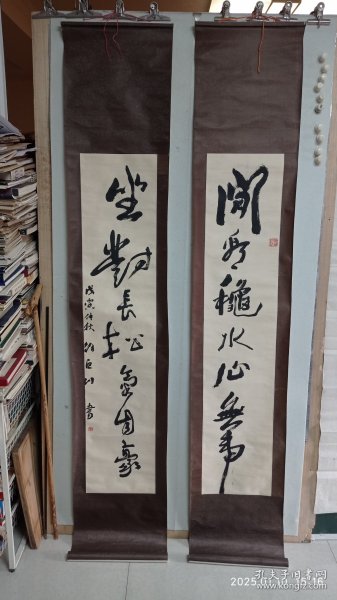 閒看秋水心無事
坐對長松氣自豪
戊寅仲秋
書
2025.01.10 15:16
孔夫子旧书网